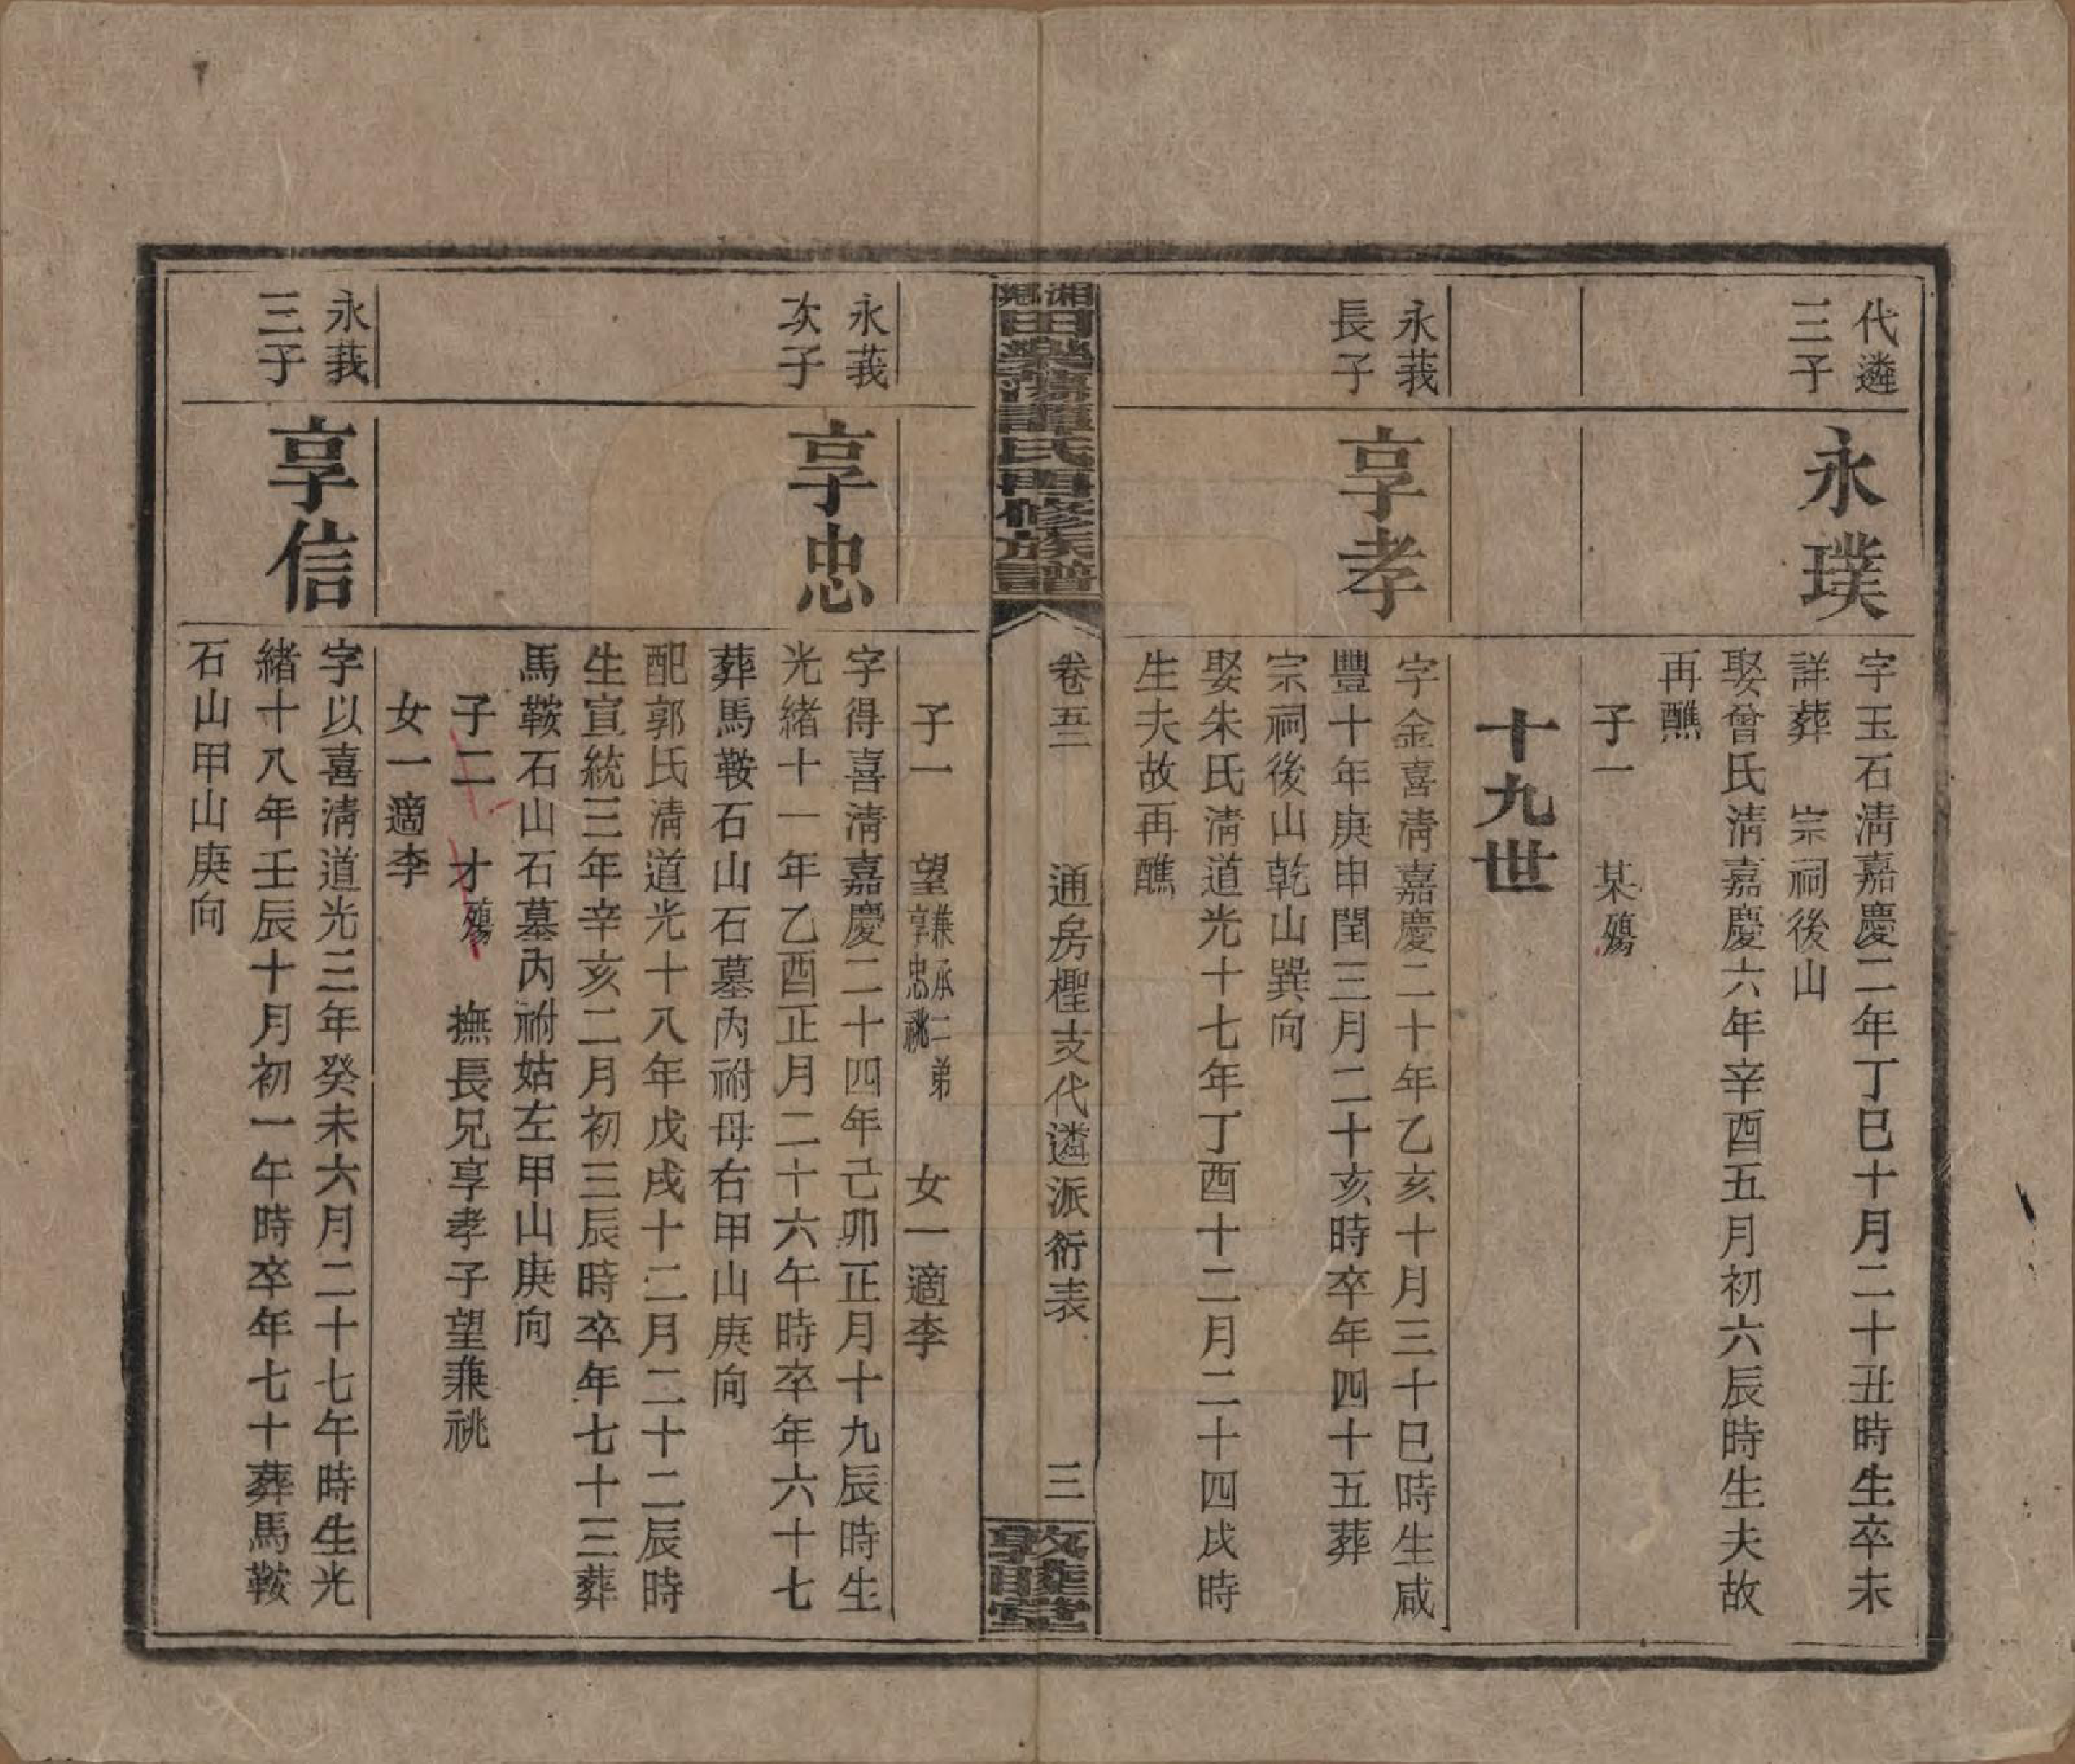 代遴
三子
永璞
字玉石清嘉慶二年丁巳十月二十丑時生卒未
詳葬　宗祠後山
娶曾氏清嘉慶六年辛酉五月初六辰時生夫故
再醮
子一　某殤
十九世
永莪
長子
享孝
字金喜清嘉慶二十年乙亥十月三十巳時生咸
豐十年庚申閏三月二十亥時卒年四十五葬
宗祠後山乾山巽向
娶朱氏清道光十七年丁酉十二月二十四戌時
生夫故再醮
湘鄉田樂譚氏再修族譜
卷五　通房檉支代遴派衍表　三
敦睦堂
子一　望兼承二弟享忠祧　女一適李
永莪
次子
享忠
字得喜清嘉慶二十四年己卯正月十九辰時生
光緒十一年乙酉正月二十六午時卒年六十七
葬馬鞍石山石墓內祔母右甲山庚向
配郭氏清道光十八年戊戌十二月二十二辰時
生宣統三年辛亥二月初三辰時卒年七十三葬
馬鞍石山石墓內祔姑左甲山庚向
子二　才殤　撫長兄享孝子望兼祧
女一適李
永莪
三子
享信
字以喜清道光三年癸未六月二十七午時生光
緒十八年壬辰十月初一午時卒年七十葬馬鞍
石山甲山庚向